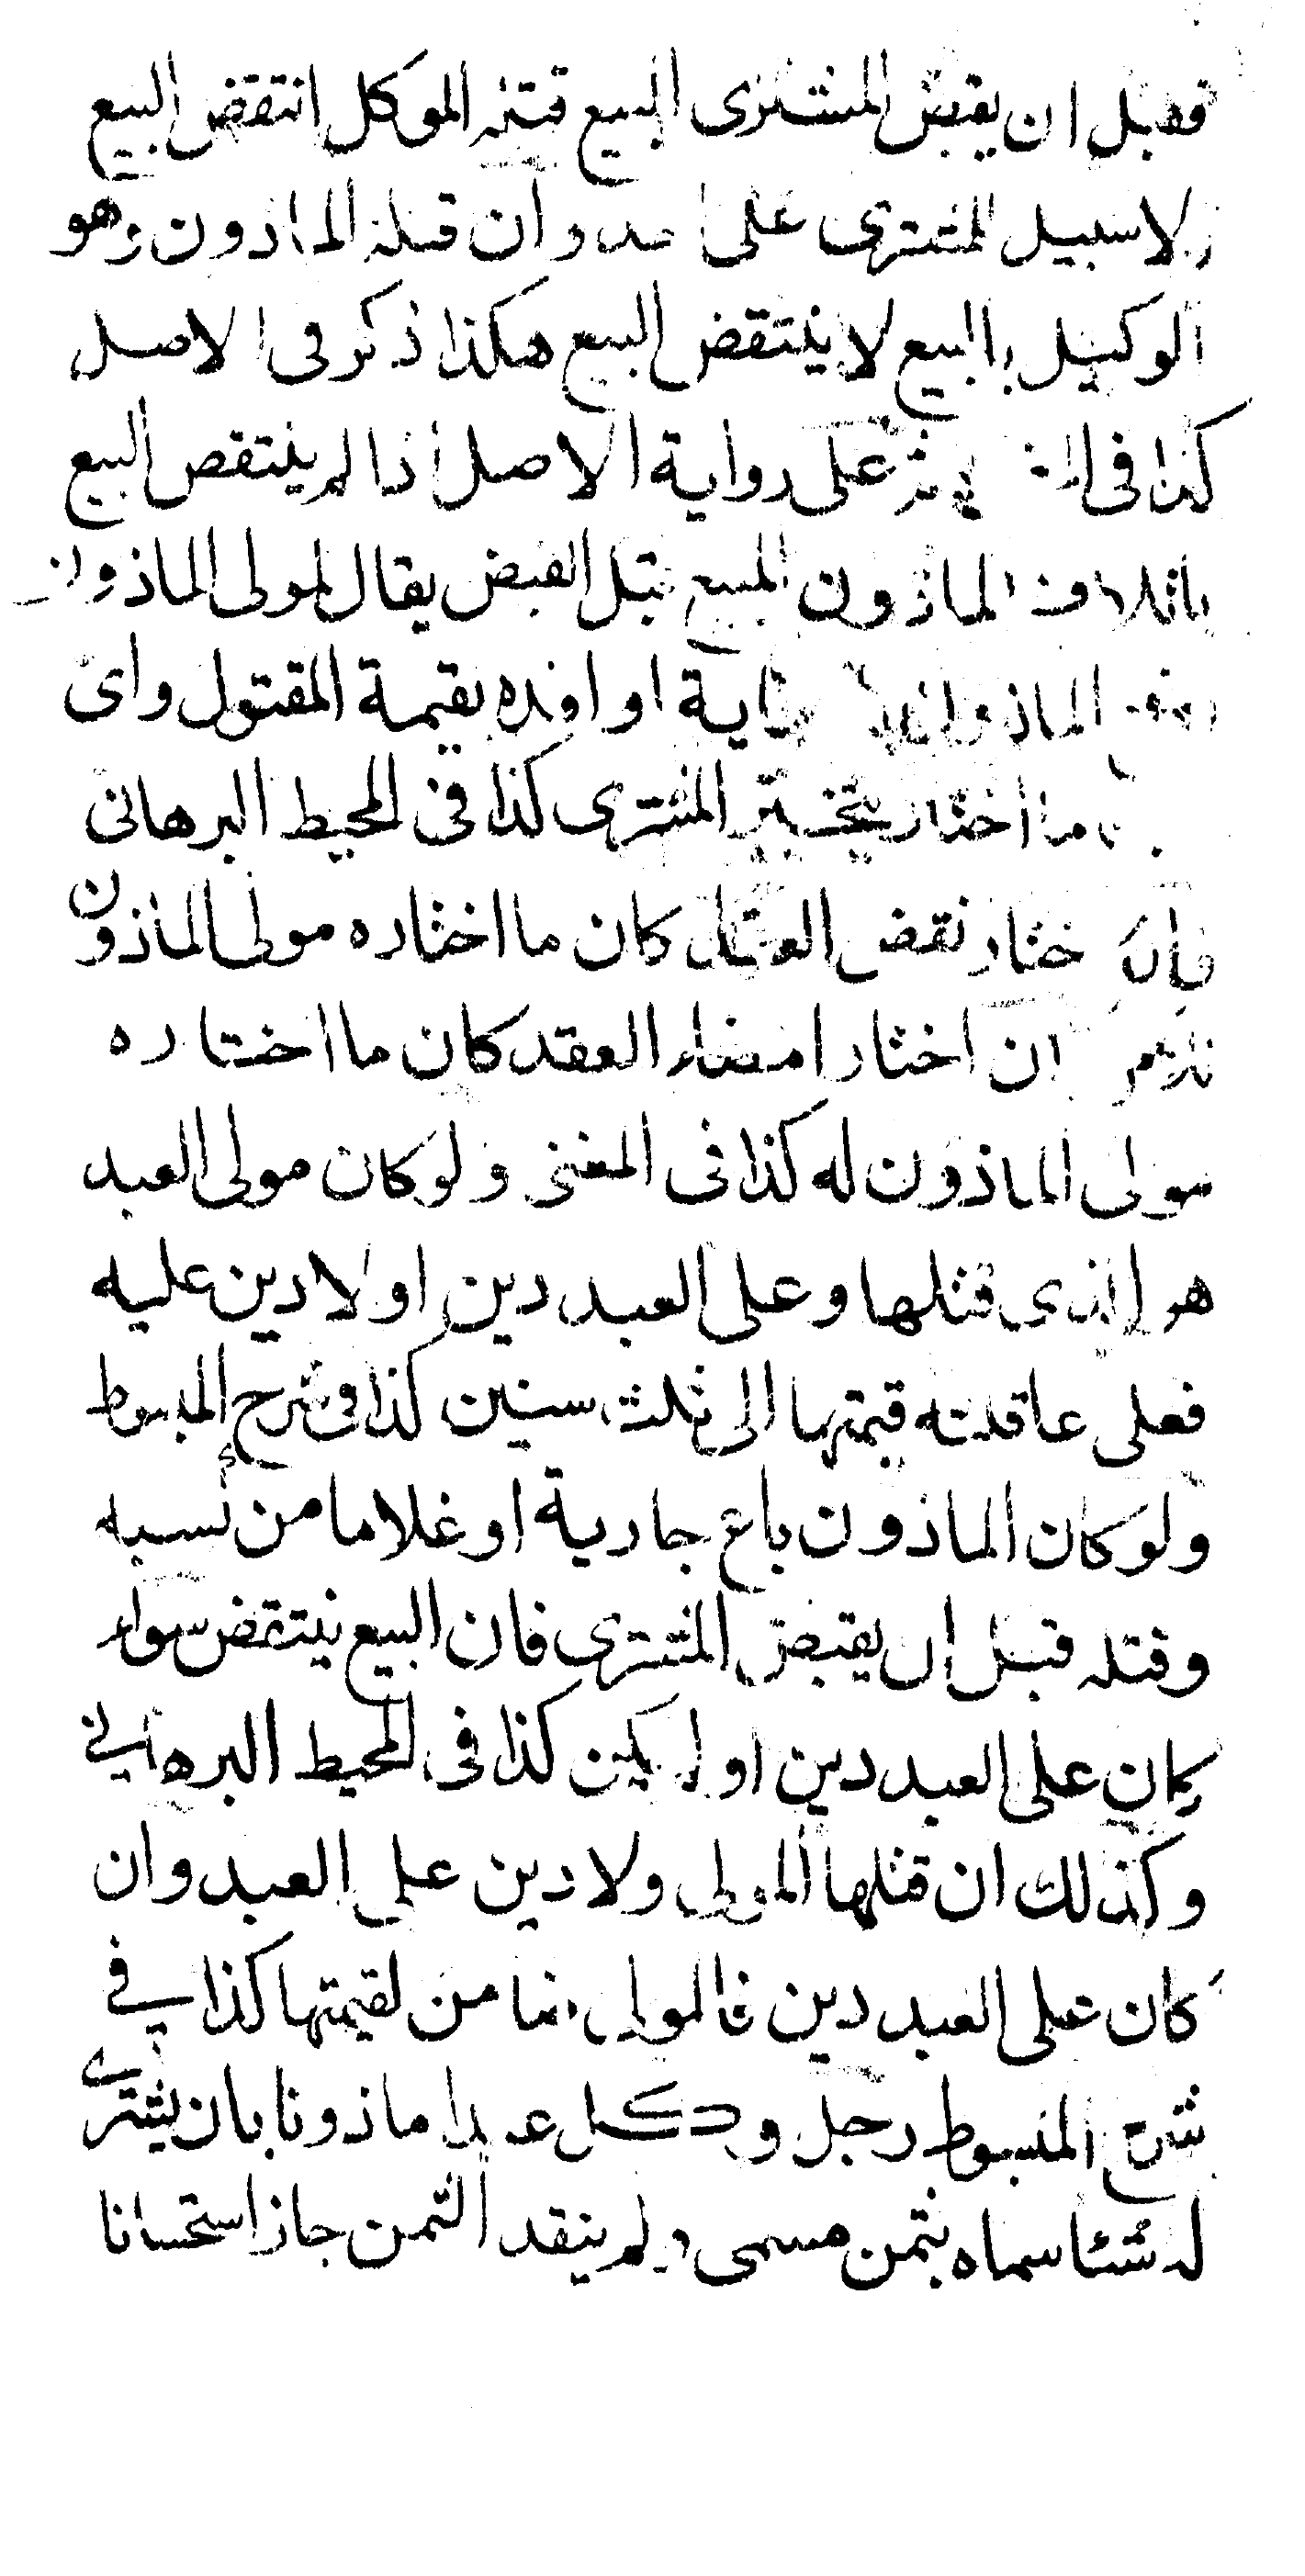 فقبل ان يقبض المشترى المبيع قتله الموكل انتقض البيع
ولا سبيل للمشترى على احد وان قتله الماذون وهو
الوكيل بالبيع لا ينتقض البيع هكذا ذكر فى الاصل
كذا فى ثم على رواية الاصل اذا لم ينتقض البيع
باتلاف الماذون المبيع قبل القبض يقال لمولى الماذون
الماذون او افده بقيمة المقتول واى
ما اختار يتخير المشترى كذا فى المحيط البرهانى
فان اختار نقض كان ما اختاره مولى الماذون
ان اختار امضاء العقد كان ما اختاره
مولى الماذون له كذا فى المغنى ولو كان مولى العبد
هو الذى قتلها وعلى العبد دين او لا دين عليه
فعلى عاقلته قيمتها الى ثلث سنين كذا فى شرح المبسوط
ولو كان الماذون باع جارية او غلاما من نسبه
وقتله قبل ان يقبض المشترى فان البيع ينتقض سواء
كان على العبد دين او لم يكن كذا فى المحيط البرهانى
وكذلك ان قتلها المولى ولا دين على العبد وان
كان على العبد دين فالمولى ضامن لقيمتها كذا فى
شرح المبسوط رجل وكل عبدا ماذونا بان يشترى
له شئا سماه بثمن مسمى ولم ينقد الثمن جاز استحسانا